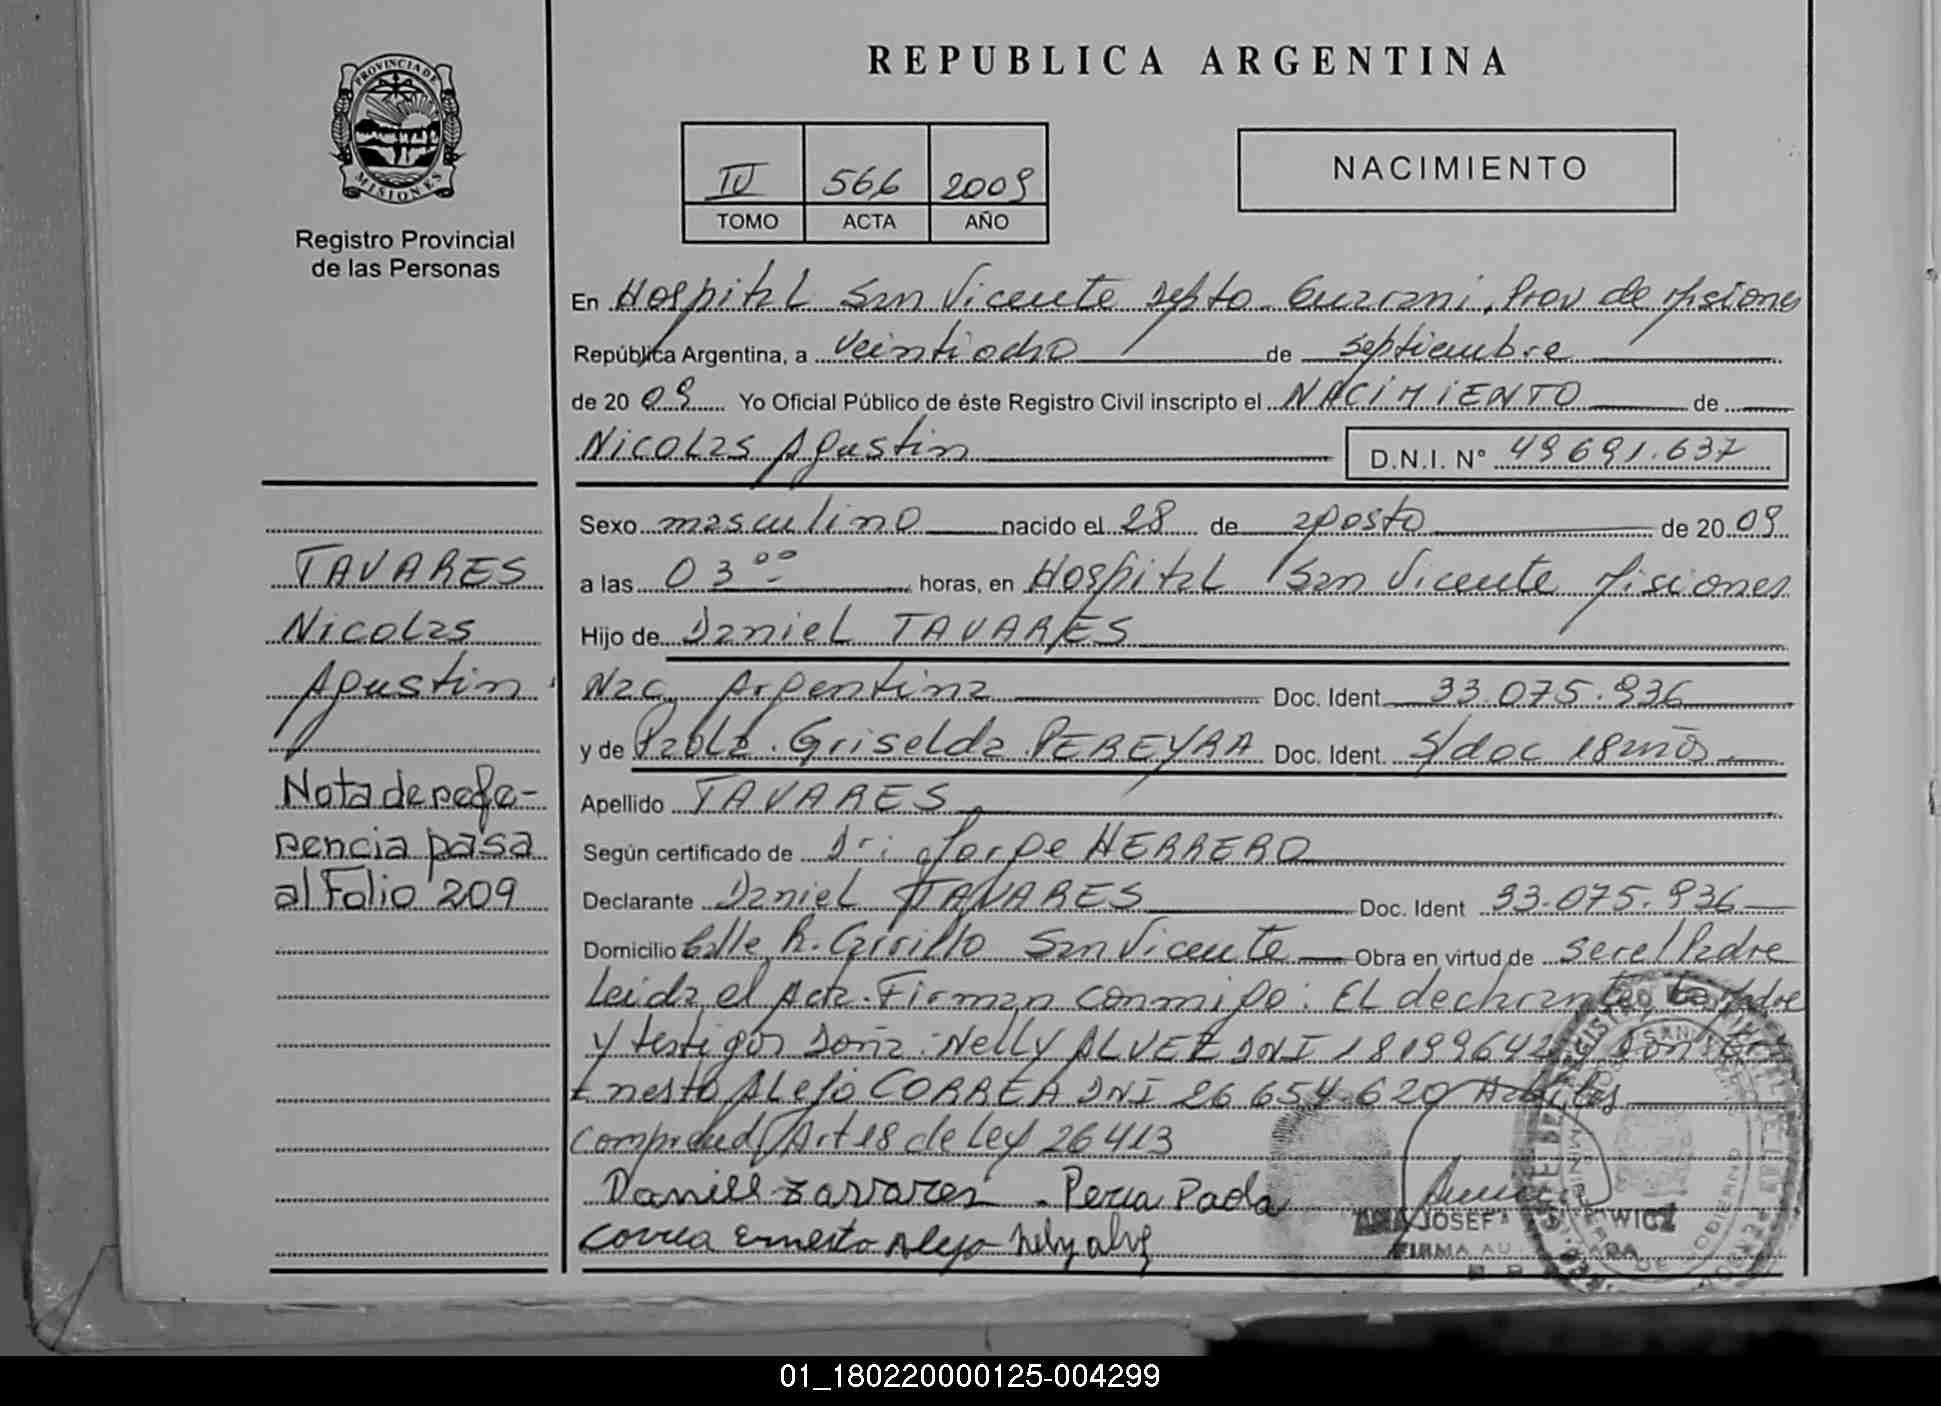 REPUBLICA ARGENTINA
PROVINCIA DE
MISIONES
Registro Provincial
de las Personas
IV 566 2009
TOMO ACTA AÑO
NACIMIENTO
En Hospital San Vicente Depto Guarani, Prov de Misiones
República Argentina, a veintiocho de septiembre
de 20 09 Yo Oficial Público de éste Registro Civil inscripto el NACIMIENTO de
Nicolas Agustin D.N.I. N° 49 691.637
Sexo masculino nacido el 28 de agosto de 20 09
a las 03 00 horas, en Hospital San Vicente Misiones
Hijo de Daniel TAVARES
Nac. Argentina Doc. Ident. 33.075.936
y de Paola Griselda PEREYRA Doc. Ident. s/doc 18 años
Apellido TAVARES
Según certificado de Dr: Jorge HERRERO
Declarante Daniel TAVARES Doc. Ident 33.075.936
Domicilio Calle R. Carrillo San Vicente Obra en virtud de ser el Padre
Leida el Acta. Firman conmigo: EL declarante, La Madre
y testigos Doña: Nelly ALVEZ DNI 18199642 Don
Ernesto Alejo CORREA DNI 26 654 620 Habiles
Comprend/Art 18 de Ley 26413
Daniel Tavares Perea Paola
Correa Ernesto Alejo Nely alvez
TAVARES
Nicolas
Agustin
Nota de refe-
rencia pasa
al Folio 209
JOSEFA WICZ
FIRMA AU
01_180220000125-004299